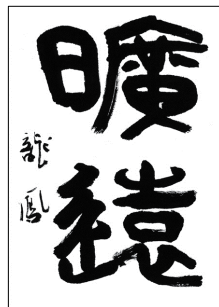 曠遠
龍鳳